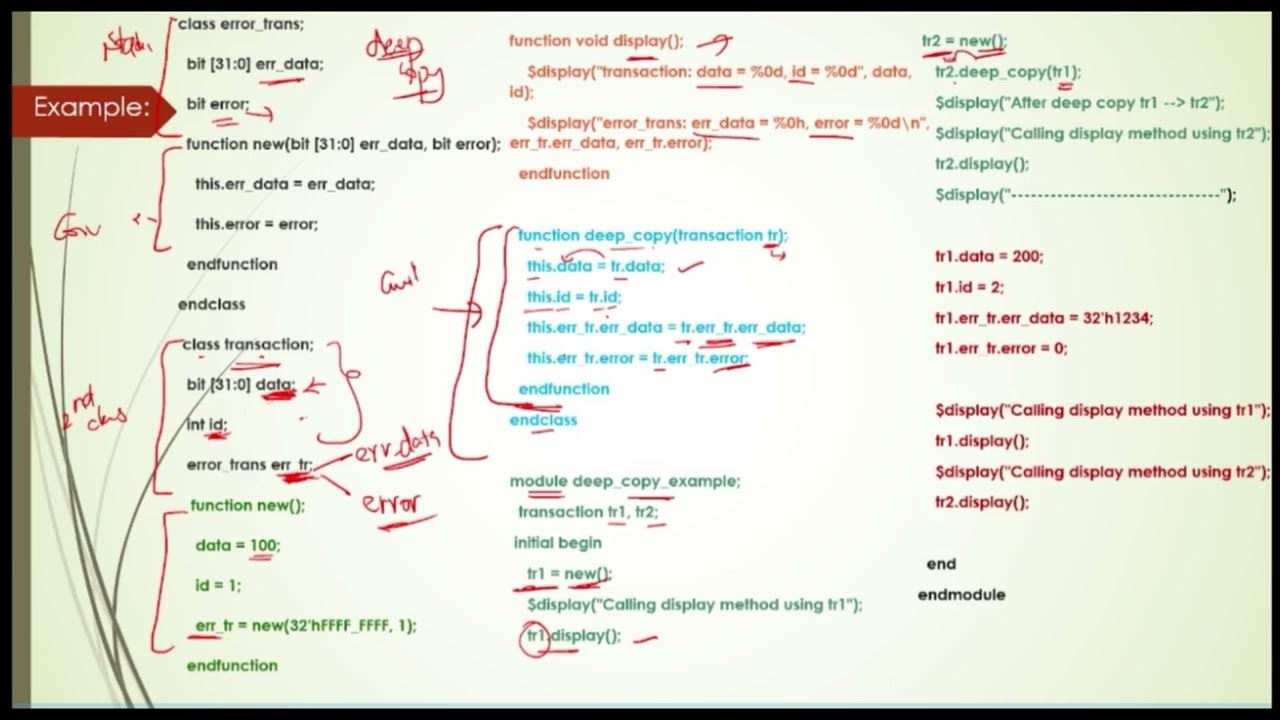 Example:
class error_trans;
bit [31:0] err_data;
bit error;
function new(bit [31:0] err_data, bit error);
this.err_data = err_data;
this.error = error;
endfunction
endclass
class transaction;
bit [31:0] data;
int id;
error_trans err_tr;
function new();
data = 100;
id = 1;
err_tr = new(32'hFFFF_FFFF, 1);
endfunction
deep
copy
err.data
error
function void display();
$display("transaction: data = %0d, id = %0d", data,
id);
$display("error_trans: err_data = %0h, error = %0d\n",
err_tr.err_data, err_tr.error);
endfunction
function deep_copy(transaction tr);
this.data = tr.data;
this.id = tr.id;
this.err_tr.err_data = tr.err_tr.err_data;
this.err_tr.error = tr.err_tr.error;
endfunction
endclass
module deep_copy_example;
transaction tr1, tr2;
initial begin
tr1 = new();
$display("Calling display method using tr1");
tr1.display();
tr2 = new();
tr2.deep_copy(tr1);
$display("After deep copy tr1 --> tr2");
$display("Calling display method using tr2");
tr2.display();
$display("--------------------------------");
tr1.data = 200;
tr1.id = 2;
tr1.err_tr.err_data = 32'h1234;
tr1.err_tr.error = 0;
$display("Calling display method using tr1");
tr1.display();
$display("Calling display method using tr2");
tr2.display();
end
endmodule